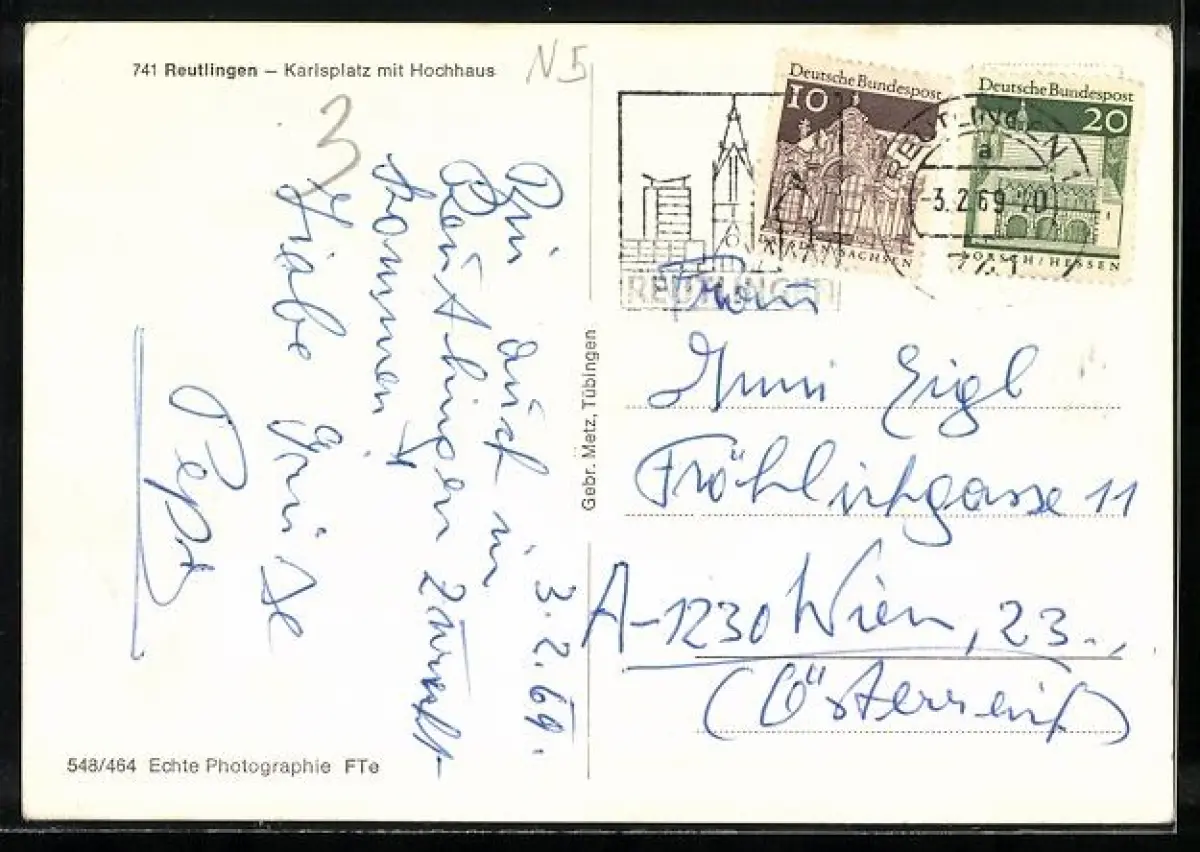 741 Reutlingen – Karlsplatz mit Hochhaus
N5
3
Deutsche Bundespost
10
Deutsche Bundespost
20
REUTLINGEN
a
-3.2.69-20
SACHSEN
LORSCH/HESSEN
REUTLINGEN
3.2.69.
Bin auch in
Reutlingen zurecht-
kommen
Liebe Grüße
Pepi
Gebr. Metz, Tübingen
Frau
Eigl
Fröhlichgasse 11
A-1230 Wien, 23.,
(Österreich)
548/464 Echte Photographie FTe